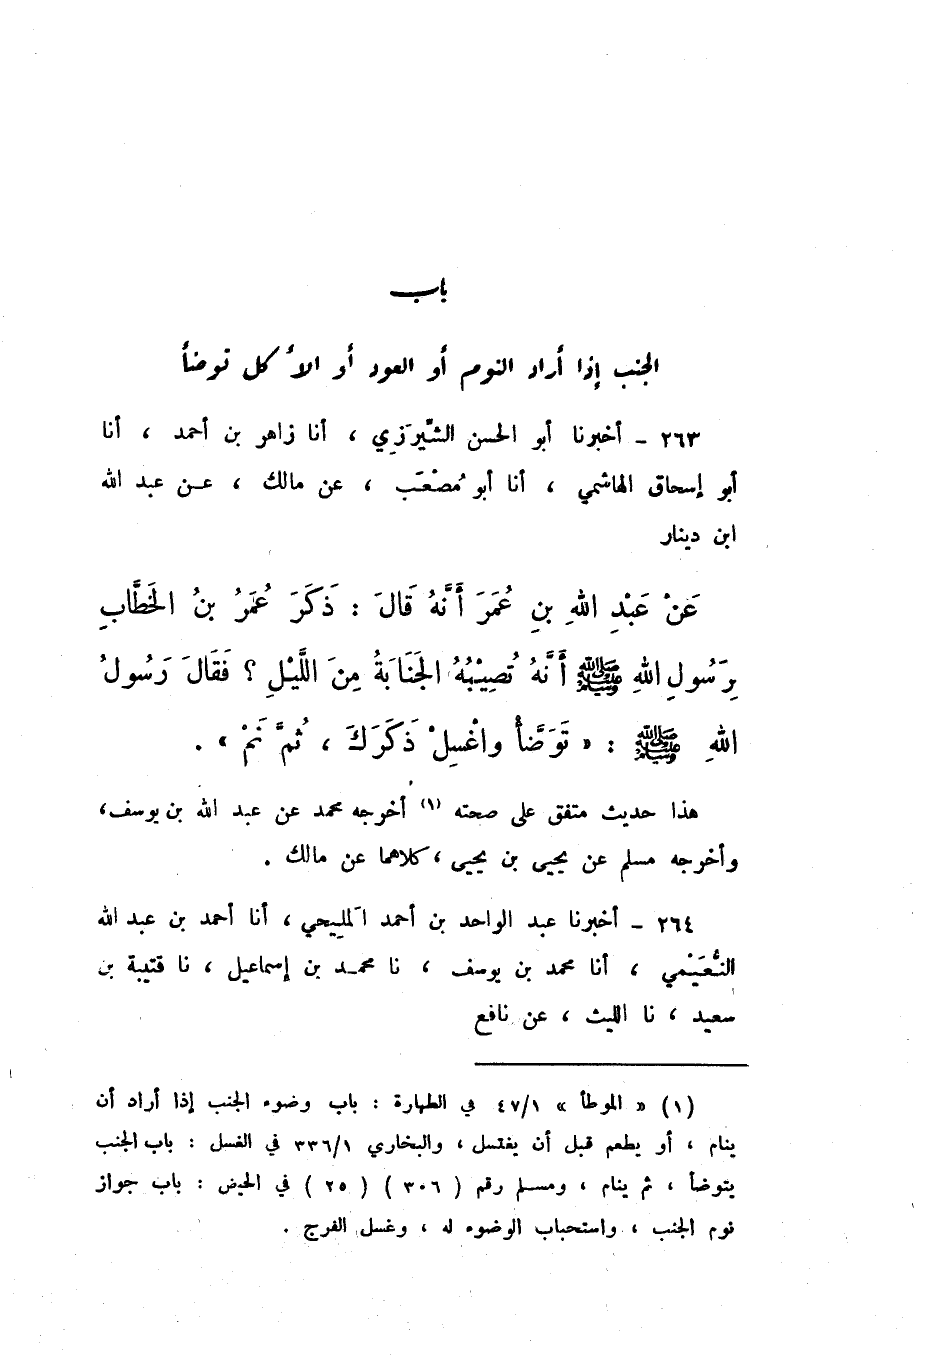 باب
الجنب إذا أراد النوم أو العود أو الأكل توضأ
٢٦٣ ـ أخبرنا أبو الحسن الشِّيرَزي ، أنا زاهر بن أحمد ، أنا
أبو إسحاق الهاشمي ، أنا أبو مُصْعَب ، عن مالك ، عـن عبد الله
ابن دينار
عَنْ عَبْدِ اللهِ بنِ عُمَرَ أَنَّهُ قَالَ : ذَكَرَ عُمَرُ بنُ الخَطَّابِ
بِرَسُولِ اللهِ ﷺ أَنَّهُ تُصِيْبُهُ الجَنَابَةُ مِنَ اللَّيْلِ ؟ فَقَالَ رَسُولُ
اللهِ ﷺ : « تَوَضَّأْ واغْسِلْ ذَكَرَكَ ، ثُمَّ نَمْ » .
هذا حديث متفق على صحته (١) أخرجه محمد عن عبد الله بن يوسف،
وأخرجه مسلم عن يحيى بن يحيى ، كلاهما عن مالك .
٢٦٤ ـ أخبرنا عبد الواحد بن أحمد المَلِيحي ، أنا أحمد بن عبد الله
النُّعَيْمي ، أنا محمد بن يوسف ، نا محمـد بن إسماعيل ، نا قتيبة بن
سعيد ، نا الليث ، عن نافع
(١) « الموطأ » ٤٧/١ في الطهارة : باب وضوء الجنب إذا أراد أن
ينام ، أو يطعم قبل أن يغتسل ، والبخاري ٣٣٦/١ في الغسل : باب الجنب
يتوضأ ، ثم ينام ، ومسلم رقم ( ٣٠٦ ) ( ٢٥ ) في الحيض : باب جواز
نوم الجنب ، واستحباب الوضوء له ، وغسل الفرج .